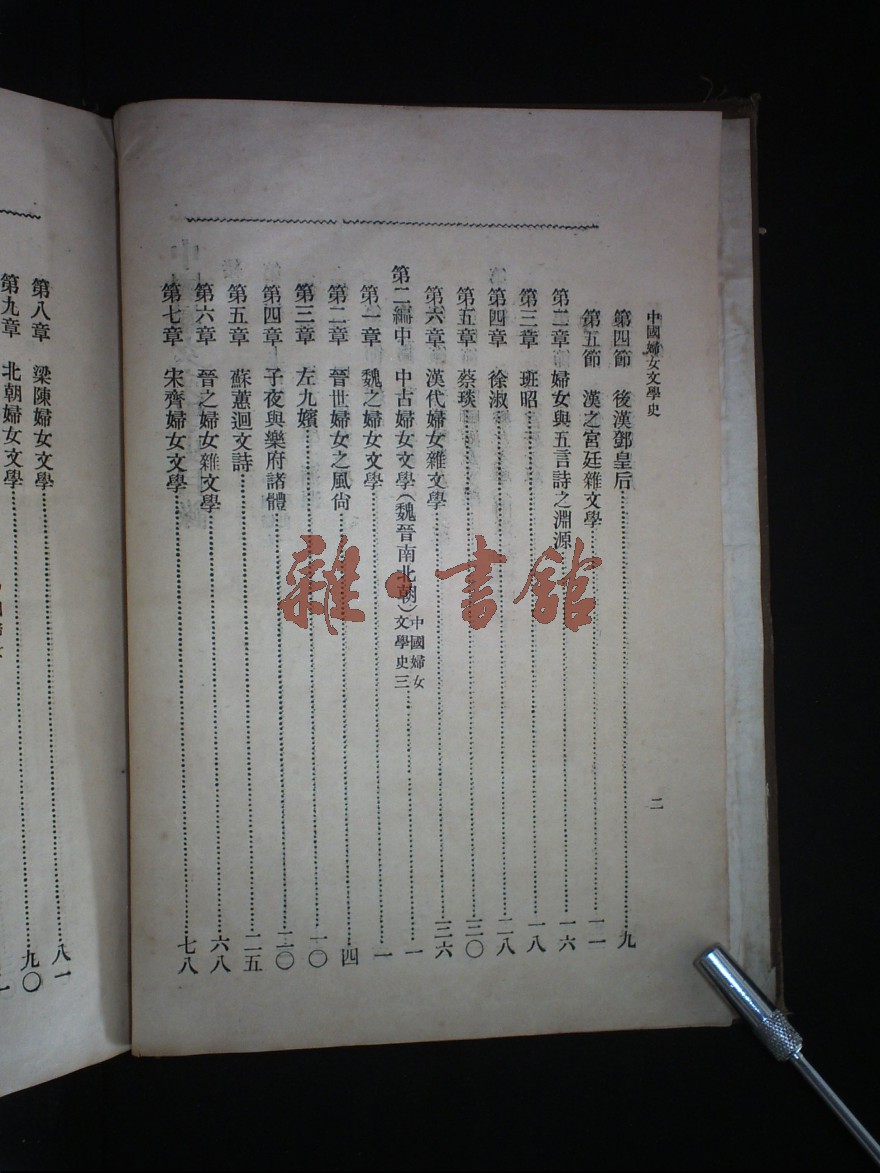 中國婦女文學史
二
第四節 後漢鄧皇后 九
第五節 漢之宮廷雜文學 一一
第二章 婦女與五言詩之淵源 一六
第三章 班昭 一八
第四章 徐淑 二八
第五章 蔡琰 三〇
第六章 漢代婦女雜文學 三六
第二編中 中古婦女文學(魏晉南北朝)中國婦女文學史三 一
第一章 魏之婦女文學 一
第二章 晉世婦女之風尙 四
第三章 左九嬪 一〇
第四章 子夜與樂府諸體 二〇
第五章 蘇蕙迴文詩 二五
第六章 晉之婦女雜文學 六八
第七章 宋齊婦女文學 七八
第八章 梁陳婦女文學 八一
第九章 北朝婦女文學 九〇
雜·書館